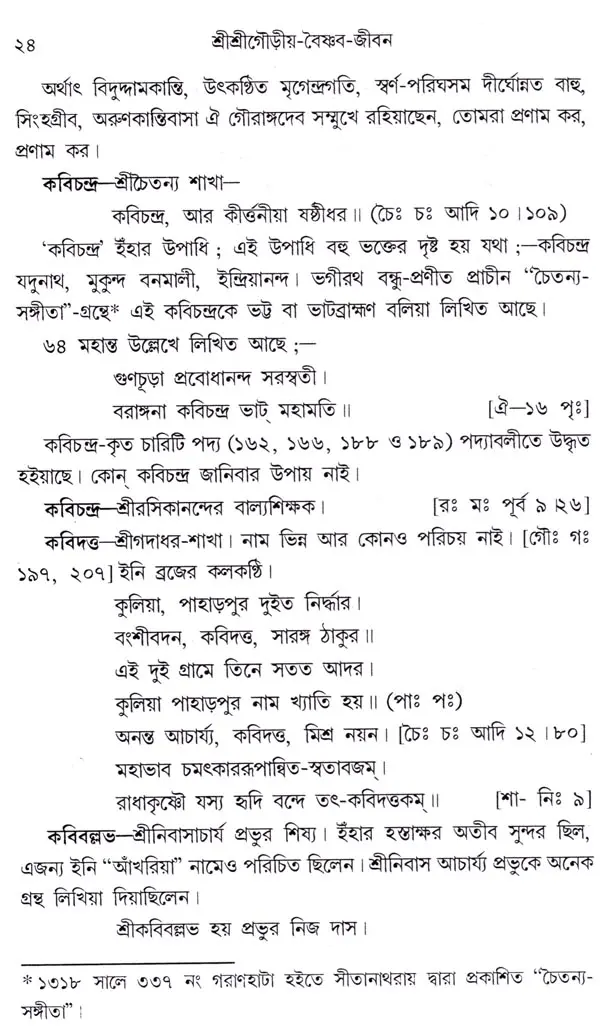 ২৪
শ্রীশ্রীগৌড়ীয়-বৈষ্ণব-জীবন
অর্থাৎ বিদুদ্দামকান্তি, উৎকণ্ঠিত মৃগেন্দ্রগতি, স্বর্ণ-পরিঘসম দীর্ঘোন্নত বাহু,
সিংহগ্রীব, অরুণকান্তিবাসা ঐ গৌরাঙ্গদেব সম্মুখে রহিয়াছেন, তোমরা প্রণাম কর,
প্রণাম কর।
কবিচন্দ্র—শ্রীচৈতন্য শাখা—
কবিচন্দ্র, আর কীর্ত্তনীয়া ষষ্ঠীধর॥ (চৈঃ চঃ আদি ১০।১০৯)
‘কবিচন্দ্র’ ইঁহার উপাধি ; এই উপাধি বহু ভক্তের দৃষ্ট হয় যথা ;—কবিচন্দ্র
যদুনাথ, মুকুন্দ বনমালী, ইন্দ্রিয়ানন্দ। ভগীরথ বন্ধু-প্রণীত প্রাচীন “চৈতন্য-
সঙ্গীতা”-গ্রন্থে* এই কবিচন্দ্রকে ভট্ট বা ভাটব্রাহ্মণ বলিয়া লিখিত আছে।
৬৪ মহান্ত উল্লেখে লিখিত আছে ;—
গুণচূড়া প্রবোধানন্দ সরস্বতী।
বরাঙ্গনা কবিচন্দ্র ভাট্ মহামতি॥ [ঐ—১৬ পৃঃ]
কবিচন্দ্র-কৃত চারিটি পদ্য (১৬২, ১৬৬, ১৮৮ ও ১৮৯) পদ্যাবলীতে উদ্ধৃত
হইয়াছে। কোন্ কবিচন্দ্র জানিবার উপায় নাই।
কবিচন্দ্র—শ্রীরসিকানন্দের বাল্যশিক্ষক। [রঃ মঃ পূর্ব ৯।২৬]
কবিদত্ত—শ্রীগদাধর-শাখা। নাম ভিন্ন আর কোনও পরিচয় নাই। [গৌঃ গঃ
১৯৭, ২০৭] ইনি ব্রজের কলকণ্ঠি।
কুলিয়া, পাহাড়পুর দুইত নির্দ্ধার।
বংশীবদন, কবিদত্ত, সারঙ্গ ঠাকুর॥
এই দুই গ্রামে তিনে সতত আদর।
কুলিয়া পাহাড়পুর নাম খ্যাতি হয়॥ (পাঃ পঃ)
অনন্ত আচার্য্য, কবিদত্ত, মিশ্র নয়ন। [চৈঃ চঃ আদি ১২।৮০]
মহাভাব চমৎকাররূপান্বিত-স্বতাবজম্।
রাধাকৃষ্ণৌ যস্য হৃদি বন্দে তৎ-কবিদত্তকম্॥ [শা- নিঃ ৯]
কবিবল্লভ—শ্রীনিবাসাচার্য্য প্রভুর শিষ্য। ইঁহার হস্তাক্ষর অতীব সুন্দর ছিল,
এজন্য ইনি “আঁখরিয়া” নামেও পরিচিত ছিলেন। শ্রীনিবাস আচার্য্য প্রভুকে অনেক
গ্রন্থ লিখিয়া দিয়াছিলেন।
শ্রীকবিবল্লভ হয় প্রভুর নিজ দাস।
* ১৩১৮ সালে ৩৩৭ নং গরাণহাটা হইতে সীতানাথরায় দ্বারা প্রকাশিত “চৈতন্য-
সঙ্গীতা”।